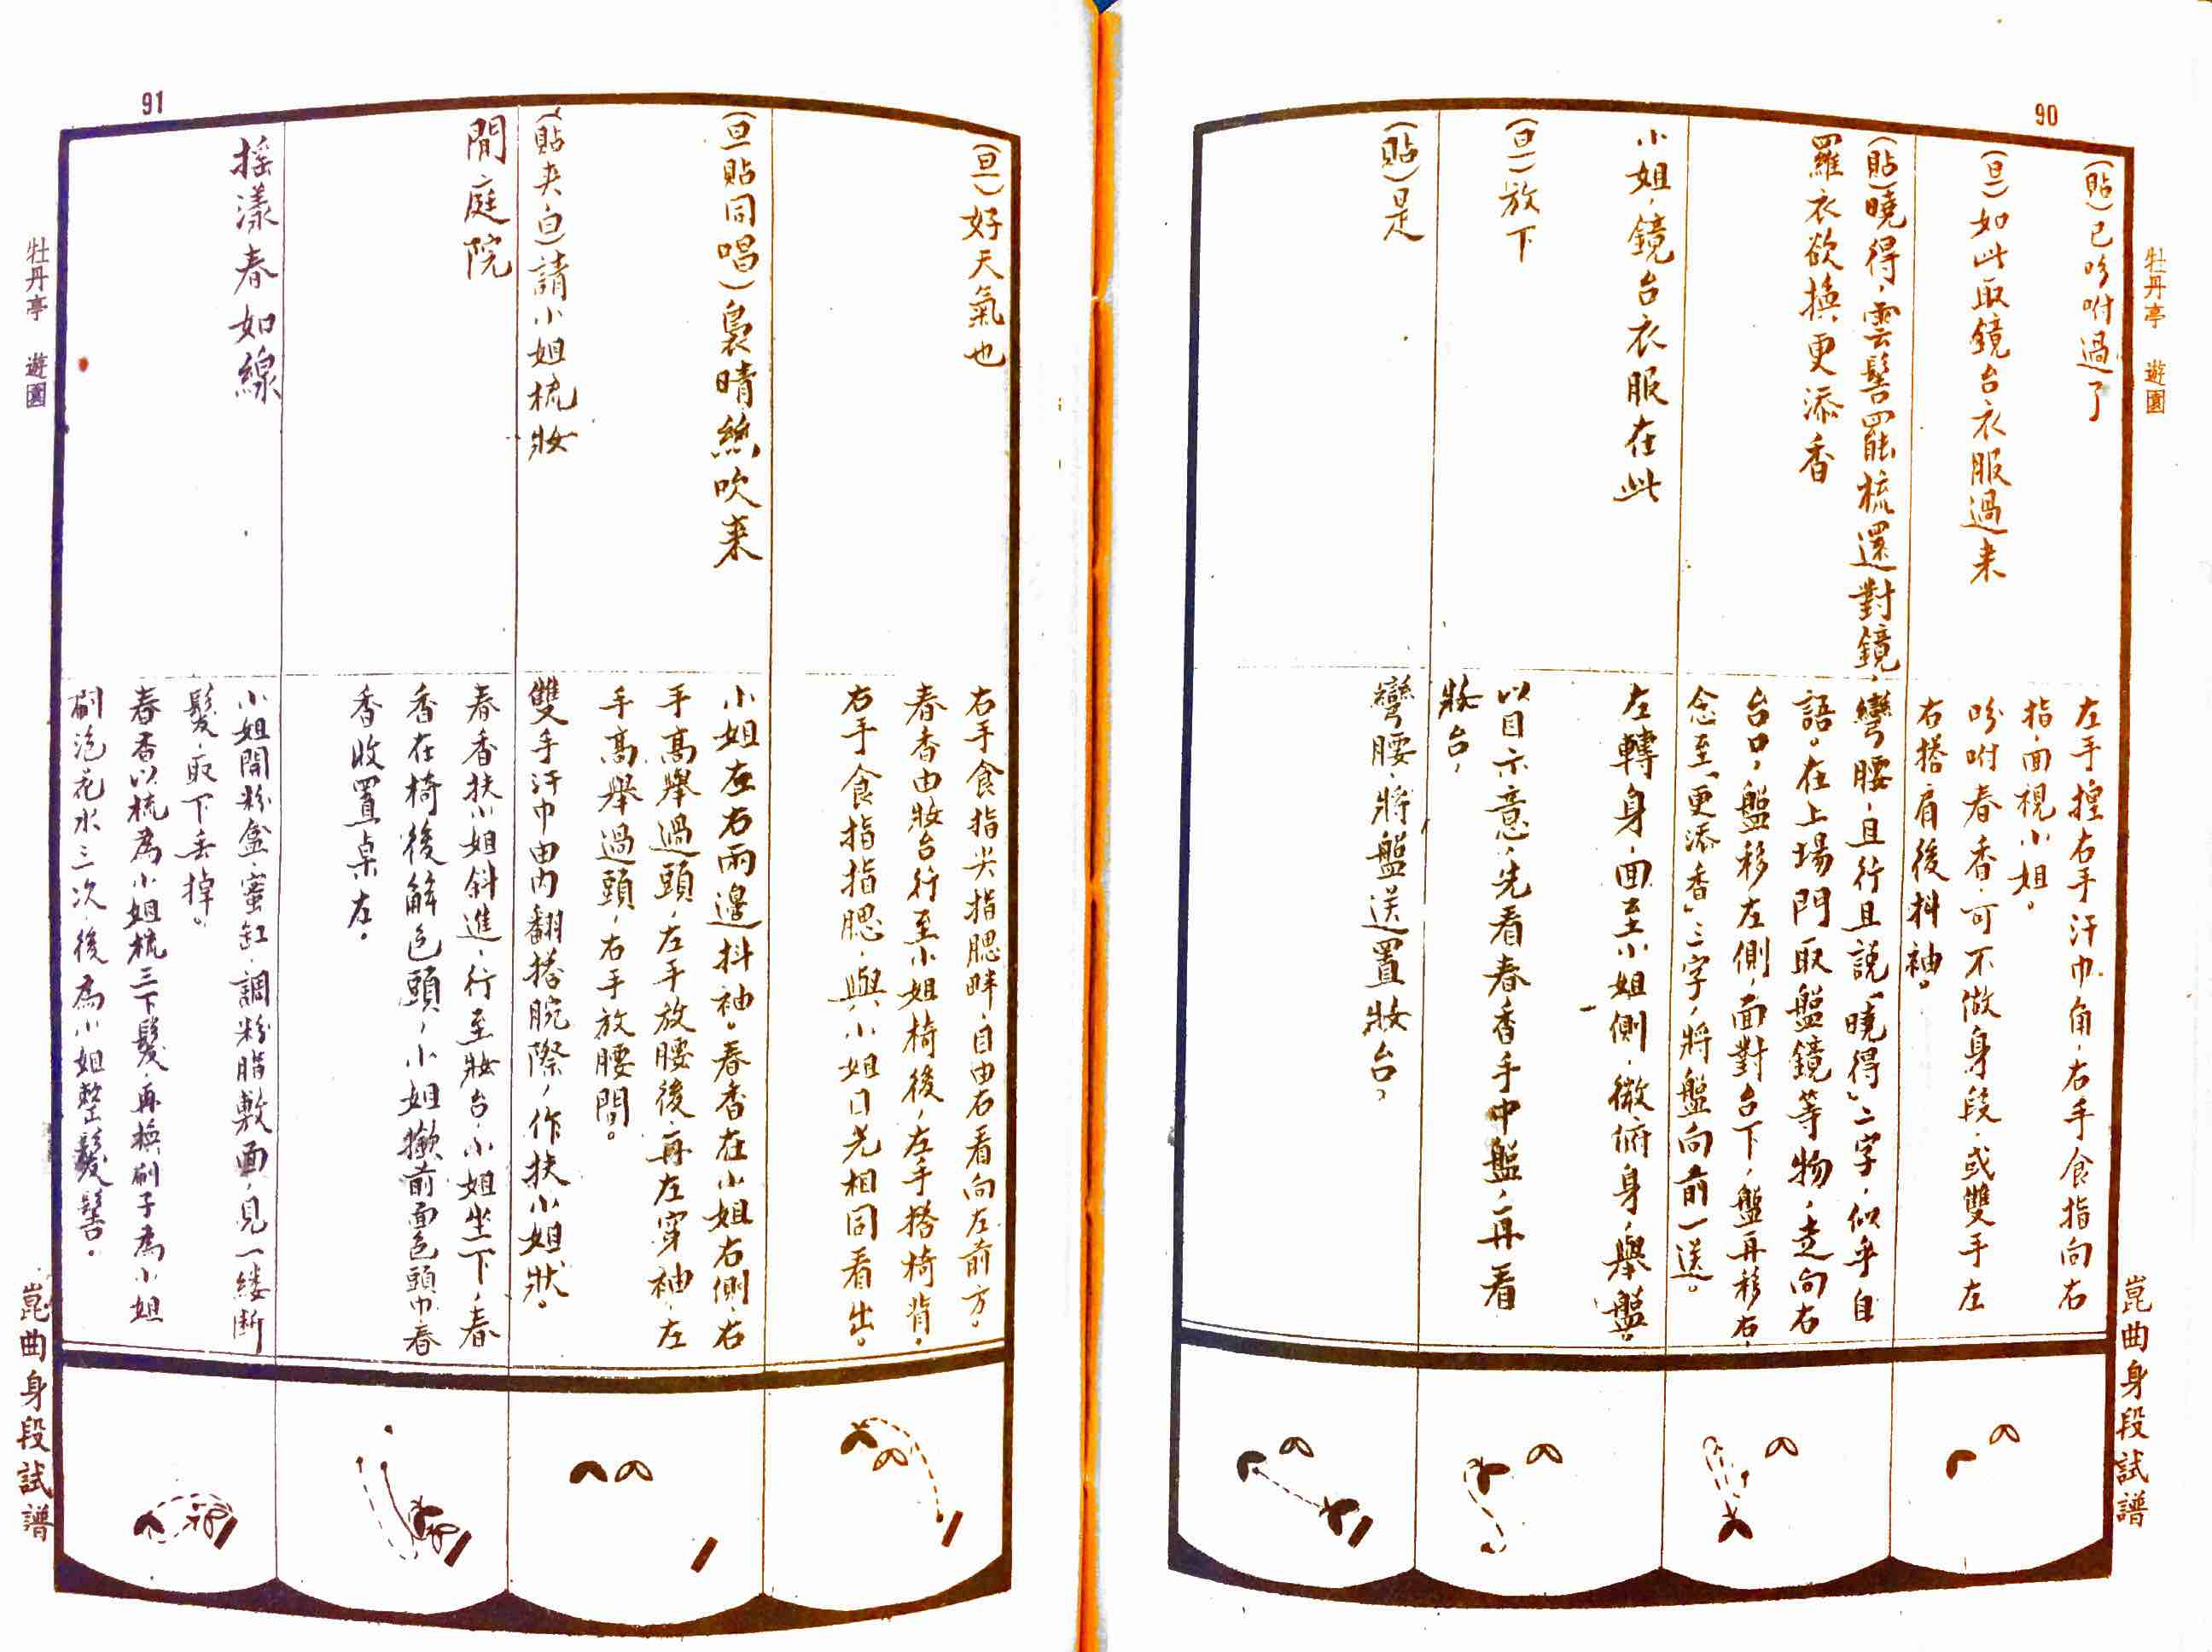 90
牡丹亭 遊園
(貼)已吩咐過了
左手搜右手汗巾角,右手食指向右
指,面視小姐。
(旦)如此取鏡台衣服過来
吩咐春香,可不做身段,或雙手左
右搭肩後抖袖。
(貼)曉得,雲髻罷梳還對鏡,
羅衣欲換更添香
彎腰,且行且說「曉得」二字,似乎自
語。在上場門取盤鏡等物,走向右
台口,盤移左側,面對台下,盤再移右,
念至「更添香」三字,將盤向前一送。
小姐,鏡台衣服在此
左轉身,面至小姐側,微俯身,舉盤。
(旦)放下
以目示意,先看春香手中盤,再看
妝台,
(貼)是
彎腰,將盤送置妝台,
崑曲身段試譜
91
牡丹亭 遊園
(旦)好天氣也
右手食指尖指腮畔,自由右看向左前方。
春香由妝台行至小姐椅後,左手搭椅背。
右手食指指腮,與小姐目光相同看出。
(旦貼同唱)裊晴絲吹来
小姐在右兩邊抖袖。春香在小姐右側,右
手高舉過頭,左手放腰後,再左穿袖,左
手高舉過頭,右手放腰間。
(貼夾白)請小姐梳妝
雙手汗巾由內翻搭腕際,作扶小姐狀。
閒庭院
春香扶小姐斜進,行至妝台,小姐坐下,春
香在椅後解包頭,小姐撳前面包頭巾,春
香收置桌左。
搖漾春如線
小姐開粉盒,蜜缸,調粉脂敷面,見一縷斷
髮,取下丢掉。
春香以梳為小姐梳三下髮,再換刷子為小姐
刷泡花水三次,後為小姐整髮髻。
崑曲身段試譜